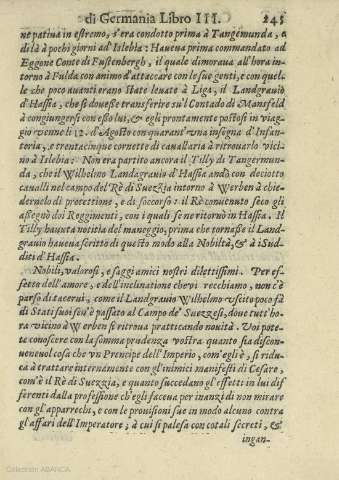 di Germania Libro III. 245
ne patiua in estremo, s'era condotto prima à Tangemunda, e
di là à pochi giorni ad Islebia: Haueua prima commandato ad
Eggone Conte di Fustenbergh, il quale dimoraua all'hora in-
torno à Fulda con animo d'attaccare con le sue genti, e con quel-
le che poco auanti erano State leuate à Liga, il Landgrauio
d'Hassia, che si douesse transferire su'l Contado di Mansfeld
à congiungersi con esso lui, & egli prontamente postosi in viag-
gio venne li 12. d'Agosto con quarant'vna insegna d'Infan-
toria, e trentacinque cornette di cauallaria à ritrouarlo vici-
no à Islebia: Non era partito ancora il Tilly di Tangermun-
da, che il Wilhelmo Landagrauio d'Hassia andò con deciotto
caualli nel campo del Rè di Suezzia intorno à Werben à chie-
dernelo di protettione, e di soccorso: il Rè conuenuto seco gli
assegnò dei Reggimenti, con i quali se ne ritornò in Hassia. Il
Tilly hauuta notitia del maneggio, prima che tornasse il Land-
grauio haueua scritto di questo modo alla Nobiltà, & à i Sud-
diti d'Hassia.
Nobili, valorosi, e saggi amici nostri dilettissimi. Per ef-
fetto dell'amore, e dell'inclinatione che vi recchiamo, non c'è
parso di tacerui, come il Landgrauio Wilhelmo vscito poco fà
di Stati suoi seu'è passato al Campo de' Suezzesi, doue tutt'ho
ra vicino à Werben si ritroua pratticando nouità. Voi pote-
te conoscere con la sõma prudenza vostra quanto sia discon-
ueneuol cosa che vn Prencipe dell'Imperio, com'egli è, si ridu-
ca à trattare internamente con gl'inimici manifesti di Cesare,
com'è il Rè di Suezzia, e quanto succedano gl'effetti in lui dif
ferenti dalla professione ch'egli faceua per inanzi di non mirare
con gl'apparrechi, e con le prouisioni sue in modo alcuno contra
gl'affari dell'Imperatore; à cui si palesa con cotali secreti, &
ingan-
Colección ABANCA